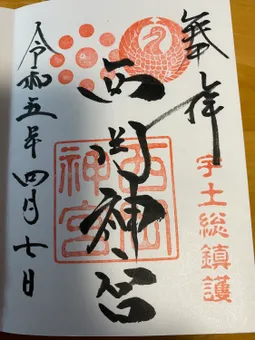 奉拝
宇土総鎮護
西岡神宮
西岡神宮
令和五年四月七日